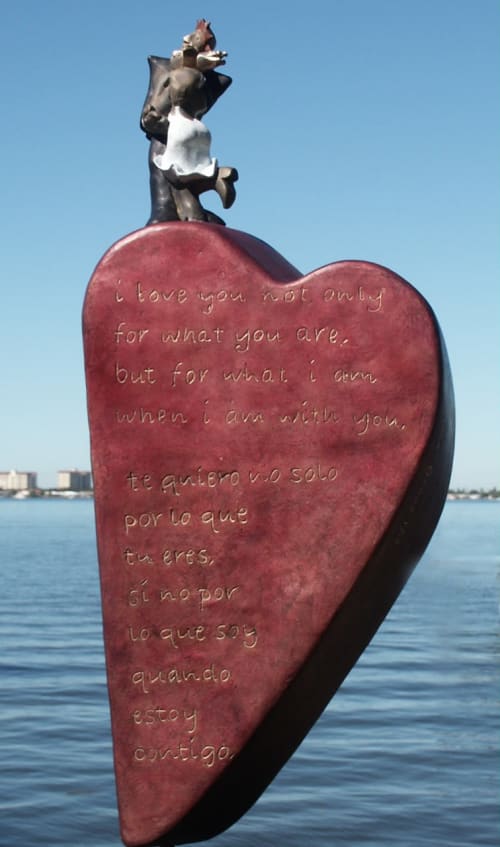 i love you not only
for what you are,
but for what i am
when i am with you.
te quiero no solo
por lo que
tu eres,
si no por
lo que soy
quando
estoy
contigo